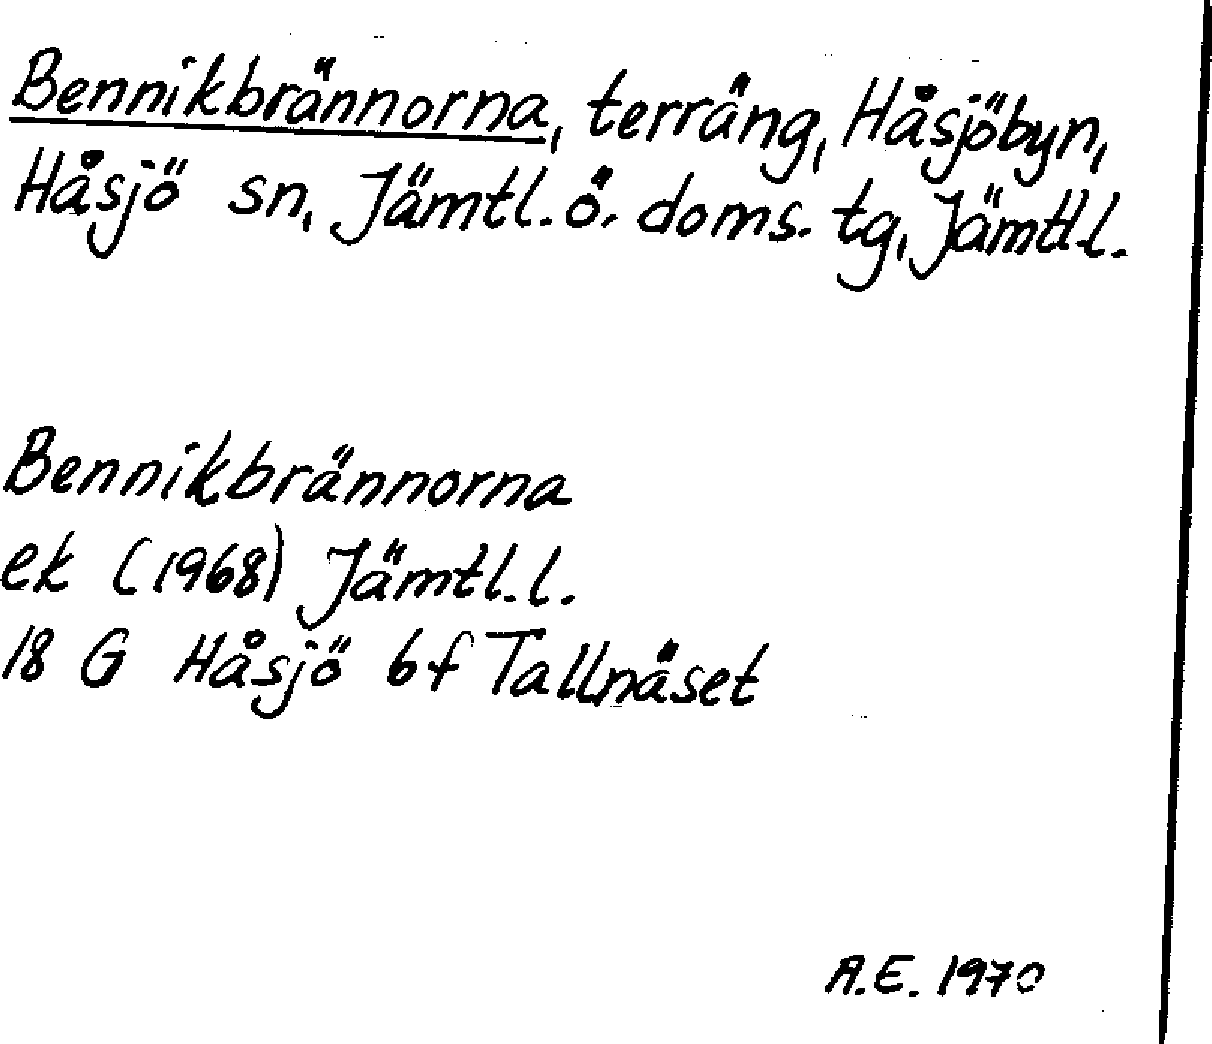 Bennikbrännorna, terräng, Håsjöbyn,
Håsjö sn, Jämtl. ö. doms. tg, Jämtl. l.
Bennikbrännorna
ek (1968) Jämtl. l.
18 G Håsjö 6 f Tallnäset
A.E. 1970